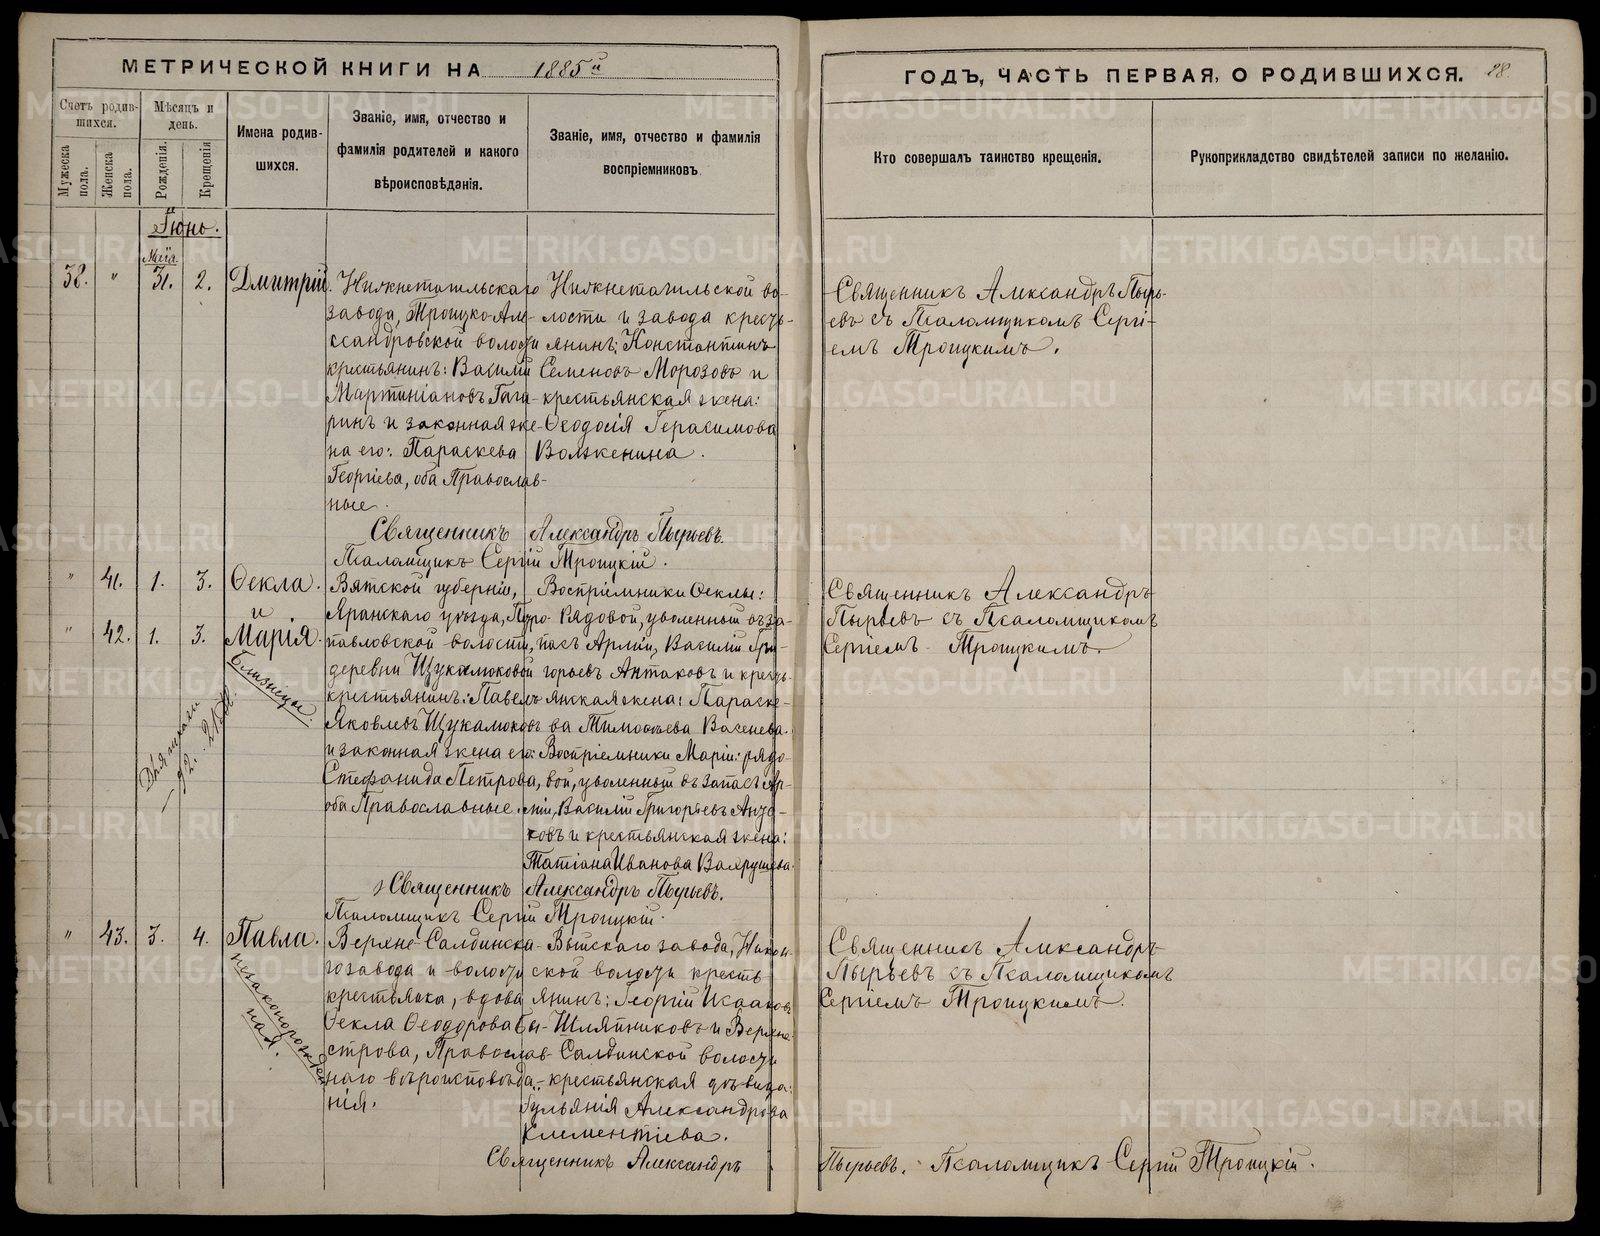 МЕТРИЧЕСКОЙ КНИГИ НА 1885й
ГОДЪ, ЧАСТЬ ПЕРВАЯ, О РОДИВШИХСЯ. 28.
Счетъ родив-
шихся.
Мужеска
пола.
Женска
пола.
Мѣсяцъ и
день.
Рожденія.
Крещенія
Имена родив-
шихся.
Званіе, имя, отчество и
фамилія родителей и какого
вѣроисповѣданія.
Званіе, имя, отчество и фамилія
воспріемниковъ.
Кто совершалъ таинство крещенія.
Рукоприкладство свидѣтелей записи по желанію.
Іюнь.
Маія
38. " 31. 2. Дмитрій.
Нижнетагильскаго
завода, Троицко-Але-
ксандровской волости
крестьянинъ: Василій
Мартиніановъ Гага-
ринъ и законная же-
на его: Параскева
Георгіева, оба Православ-
ные.
Нижнетагильской во-
лости и завода кресть-
янинъ: Константинъ
Семеновъ Морозовъ и
крестьянская жена:
Ѳеодосія Герасимова
Волженина.
Священникъ Александръ Пырь-
евъ съ Псаломщикомъ Сергі-
емъ Троицкимъ.
Священникъ Александръ Пырьевъ.
Псаломщикъ Сергій Троицкій.
" 41. 1. 3. Ѳекла.
и
" 42. 1. 3. Марія.
Близнецы.
Вятской губерніи,
Яранскаго уѣзда, Петро-
павловской волости,
деревни Щукамоковой
крестьянинъ: Павелъ
Яковлевъ Щукамоковъ
и законная жена его:
Стефанида Петрова,
оба Православные.
Воспріемники Ѳеклы:
Рядовой, уволенный въ за-
пасъ Арміи, Василій Гри-
горьевъ Антаковъ и кресть-
янская жена: Параске-
ва Тимоѳеева Васенева.
Воспріемники Маріи: рядо-
вой, уволенный въ запасъ Ар-
міи, Василій Григорьевъ Анта-
ковъ и крестьянская жена:
Татіана Иванова Вахрушева.
Священникъ Александръ
Пырьевъ съ Псаломщикомъ
Сергіемъ Троицкимъ.
Священникъ Александръ Пырьевъ.
Псаломщикъ Сергій Троицкій.
" 43. 3. 4. Павла.
незаконорожден
ная.
Верхне-Салдинска-
го завода и волости
крестьянка, вдова
Ѳекла Ѳеодорова Бы-
строва, Православ-
наго вѣроисповѣда-
нія.
Выйскаго завода, Никол-
ской волости кресть-
янинъ: Георгій Исааковъ
Шляпниковъ и Верхне-
Салдинской волости
крестьянская дѣвица:
Гульянія Александрова
Клементіева.
Священникъ Александръ
Пырьевъ съ Псаломщикомъ
Сергіемъ Троицкимъ.
Священникъ Александръ Пырьевъ. Псаломщикъ Сергій Троицкій.
METRIKI.GASO-URAL.RU